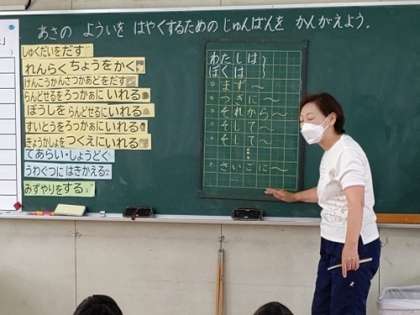 あさの よういを はやくするための じゅんばんを かんがえよう.
しゅくだいをだす
れんらくちょうをかく
けんこうかんさつかあどをだす
らんどせるをろっかぁにいれる
ぼうしをらんどせるにいれる
すいとうをろっかぁにいれる
きょうかしょをつくえにいれる
てあらい・しょうどく
うわぐつにはきかえる
みずやりをする
わたしは
ぼくは
・まず〜
・つぎに〜
・それから〜
・そして〜
・そして〜
・さいごに〜